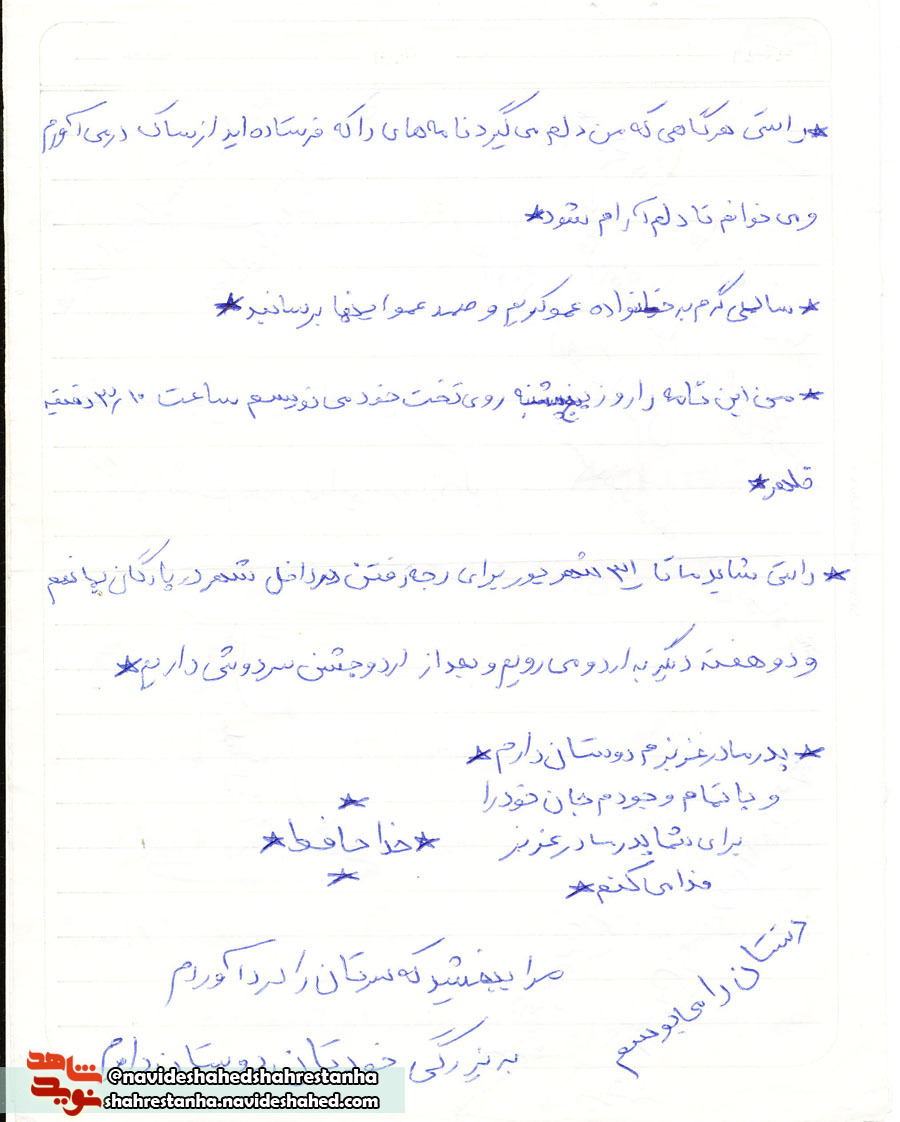 ★ راستی هرگاهی که من دلم می گیرد نامه های را که فرستاده اید از ساک در می آورم
و می خوانم تا دلم آرام شود ★
★ سلامی گرم به خانواده عمو کریم و صمد عمو اینها برسانید ★
★ من این نامه را روز پنچشنبه روی تخت خود می نویسم ساعت ۳٫۱۰ دقیقه
ظهر ★
★ راستی شاید ما تا ۳۱ شهریور برای رجه رفتن در داخل شهر در پادگان بمانیم
و دو هفته دیگر به اردو می رویم و بعد از اردو جشن سردوشی داریم ★
★ پدر مادر عزیزم دوستان دارم ★
و با تمام وجودم جان خود را
برای شما پدر مادر عزیز
فدا می کنم ★
★ خدا حافظ ★
دستان را می بوسم
مرا ببخشید که سرتان را درد آوردم
به بزرگی خودتان دوستان دارم
نوید شاهد
@navideshahedshahrestanha
shahrestanha.navideshahed.com